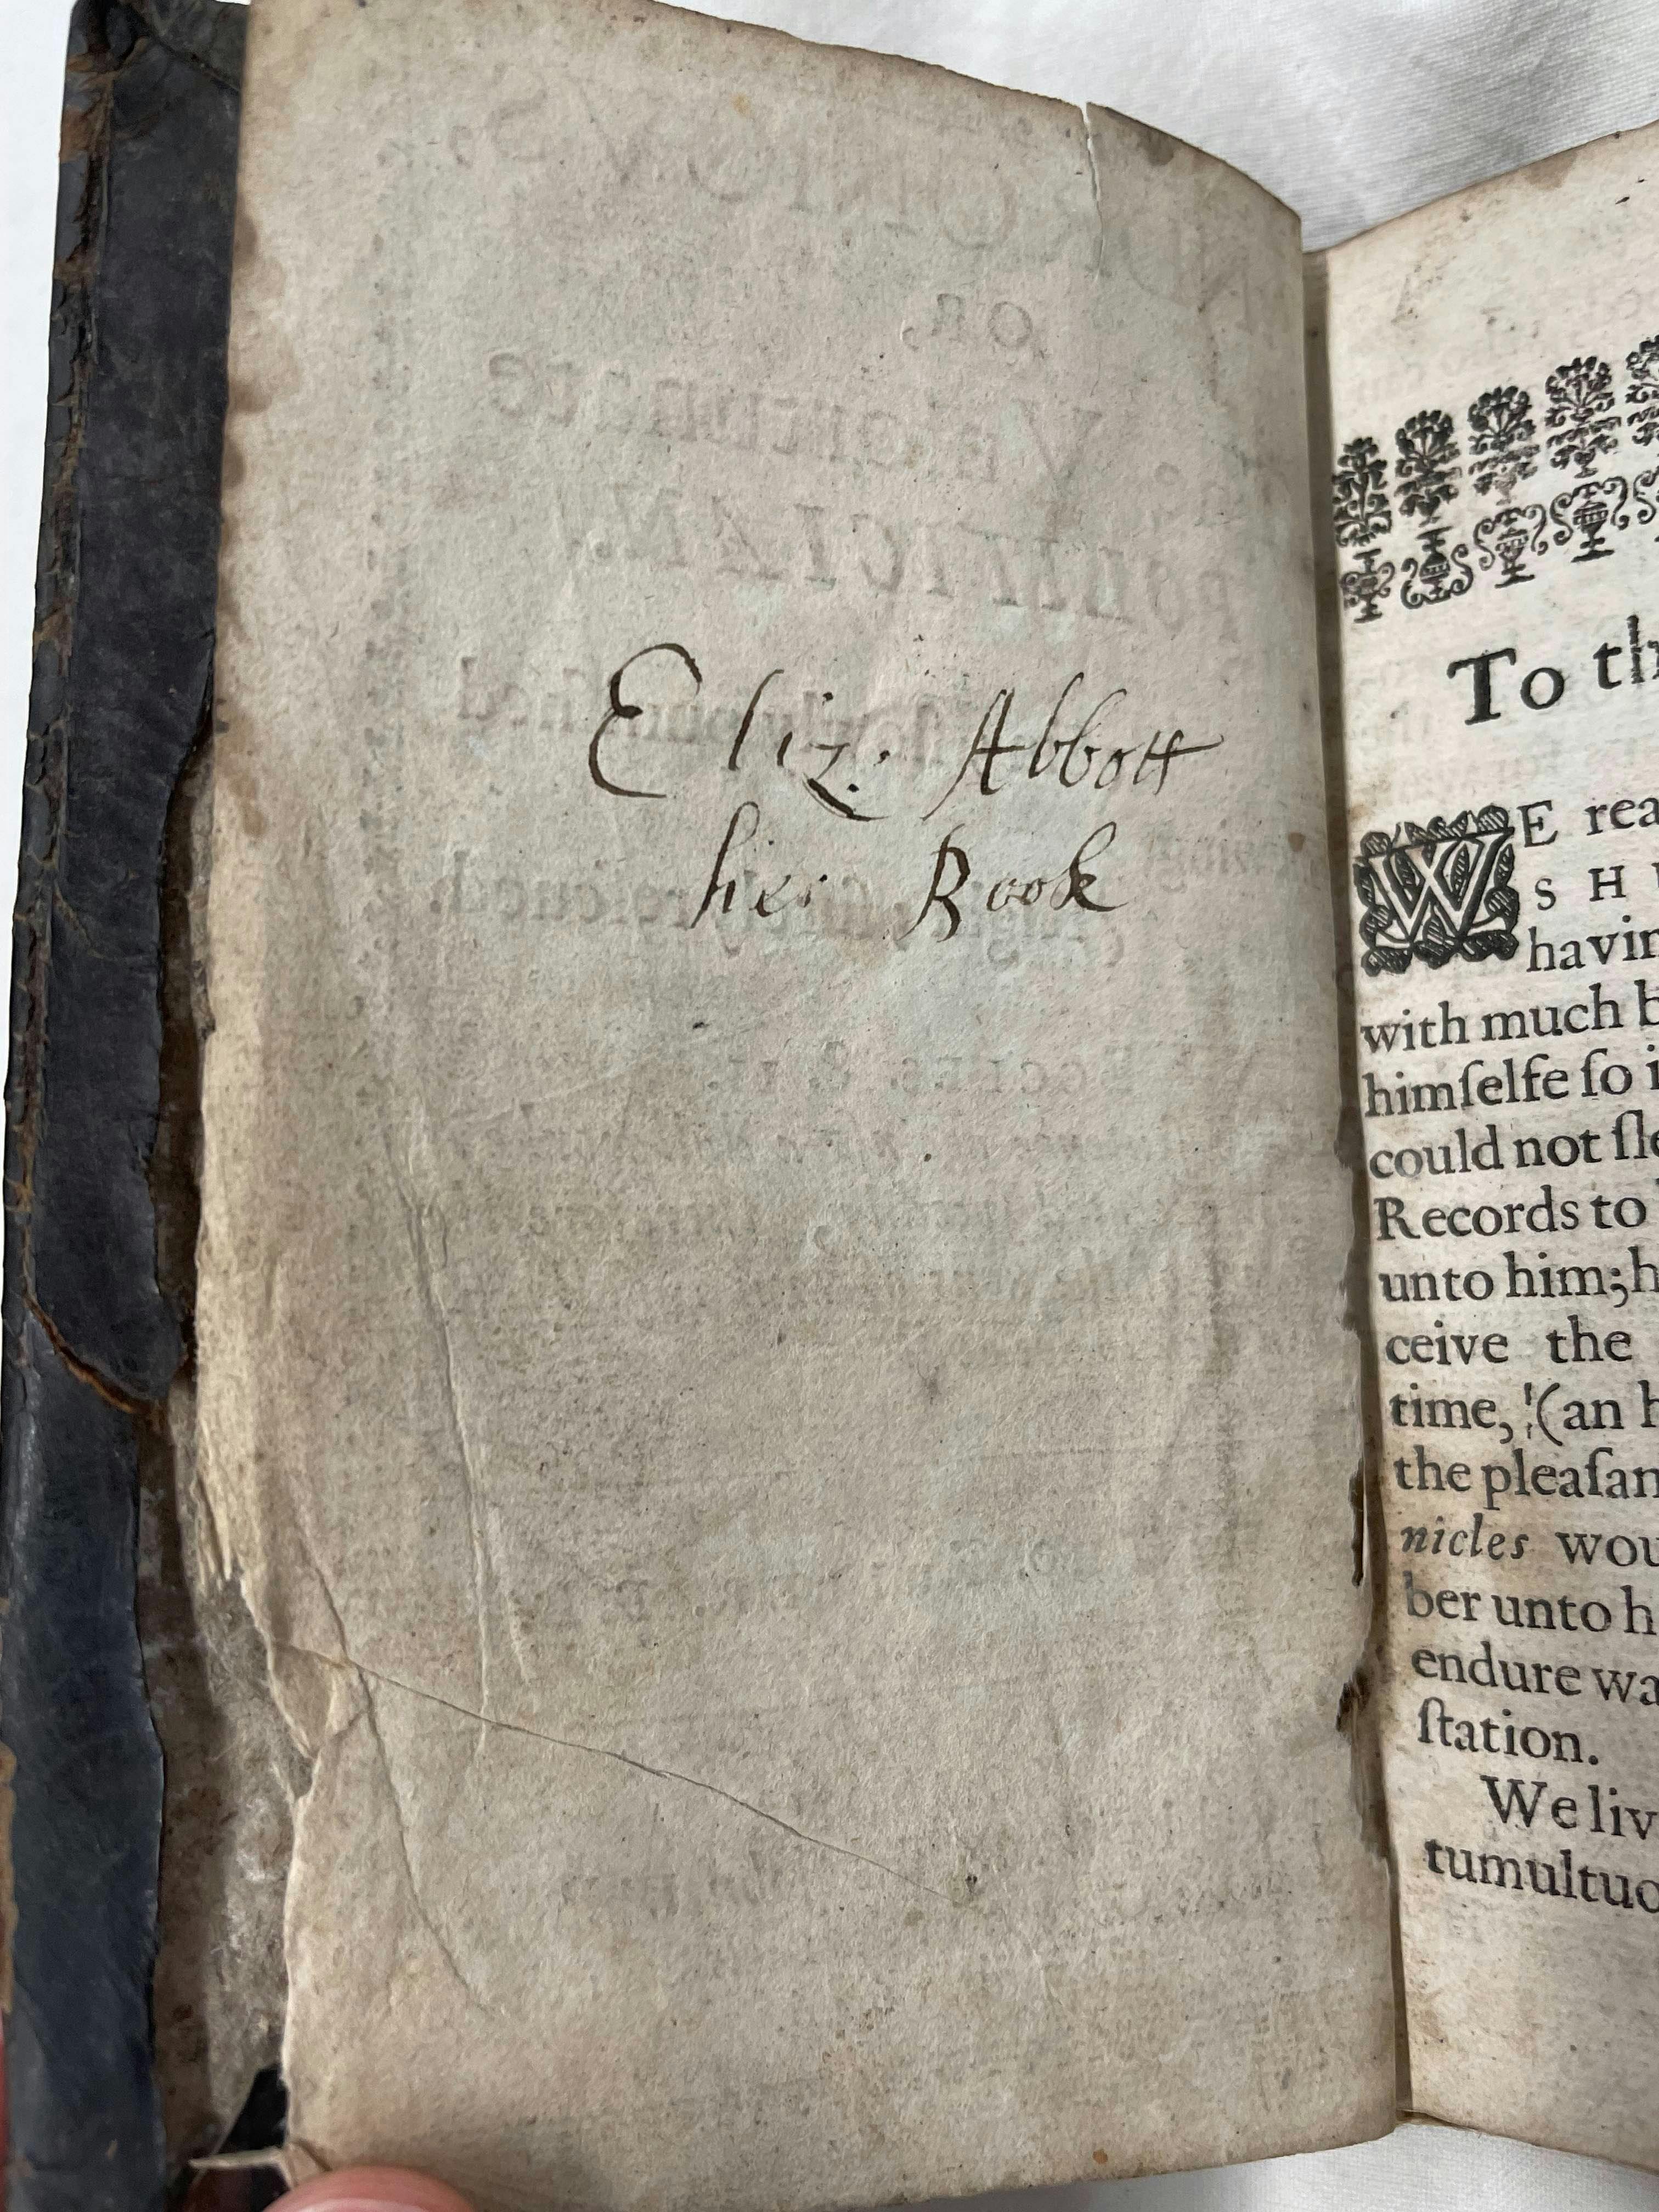 Eliz. Abbott
her Book
To th
WE rea
S H
havin
with much b
himſelfe ſo i
could not ſle
Records to
unto him; h
ceive the
time, (an h
the pleaſan
nicles wou
ber unto h
endure wa
ſtation.
We liv
tumultuo